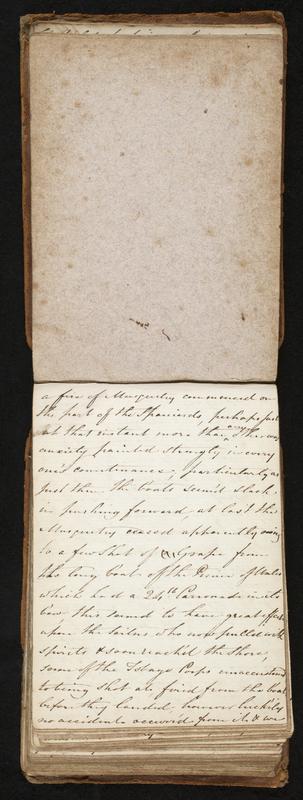 a fire of Musquetry commenced on
the part of the Spaniards, perhaps just
at that instant more than any other was
anxiety painted strongly in every
ones countenance, particularly as
just then the boats seem'd slack
in pushing forward, at last the
Musquetry ceased apparently owing
to a few shot of Grape from
the long boat off the Prince of Wales
which had a 24lb Carronade in its
bow this seemed to have great effect
upon the Sailors who now pulled with
spirits & soon reach'd the Shore,
some off the Corps unaccustomd
to being shot at, fired from the boat
before they landed, however luckily
no accidents occurred from it & we